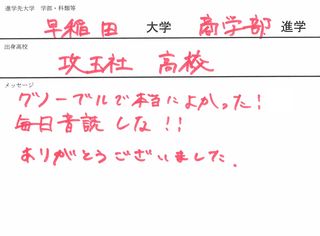 進学先大学 学部・科類等
早稲田 大学 商学部 進学
出身高校
攻玉社 高校
メッセージ
グノーブルで本当によかった!
毎日音読しな!!
ありがとうございました.